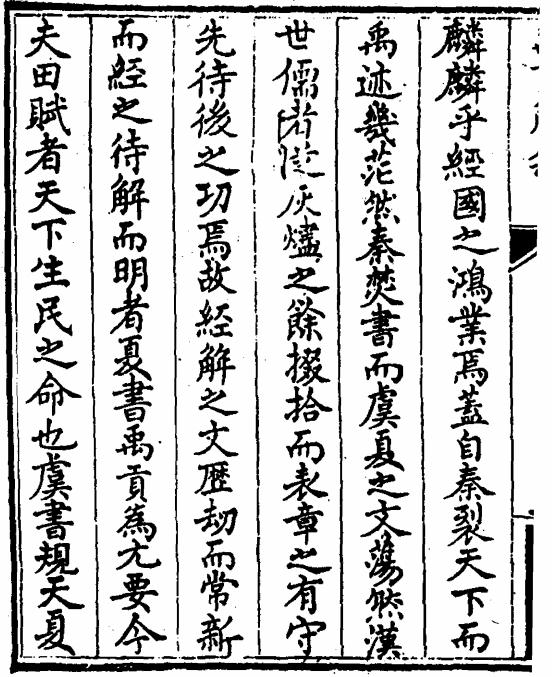 麟麟乎經國之鴻業焉蓋自秦裂天下而
禹迹幾茫然秦焚書而虞夏之文蕩然漢
世儒者從灰燼之餘掇拾而表章之有守
先待後之功焉故經解之文歷劫而常新
而經之待解而明者夏書禹貢為尤要今
夫田賦者天下生民之命也虞書規天夏